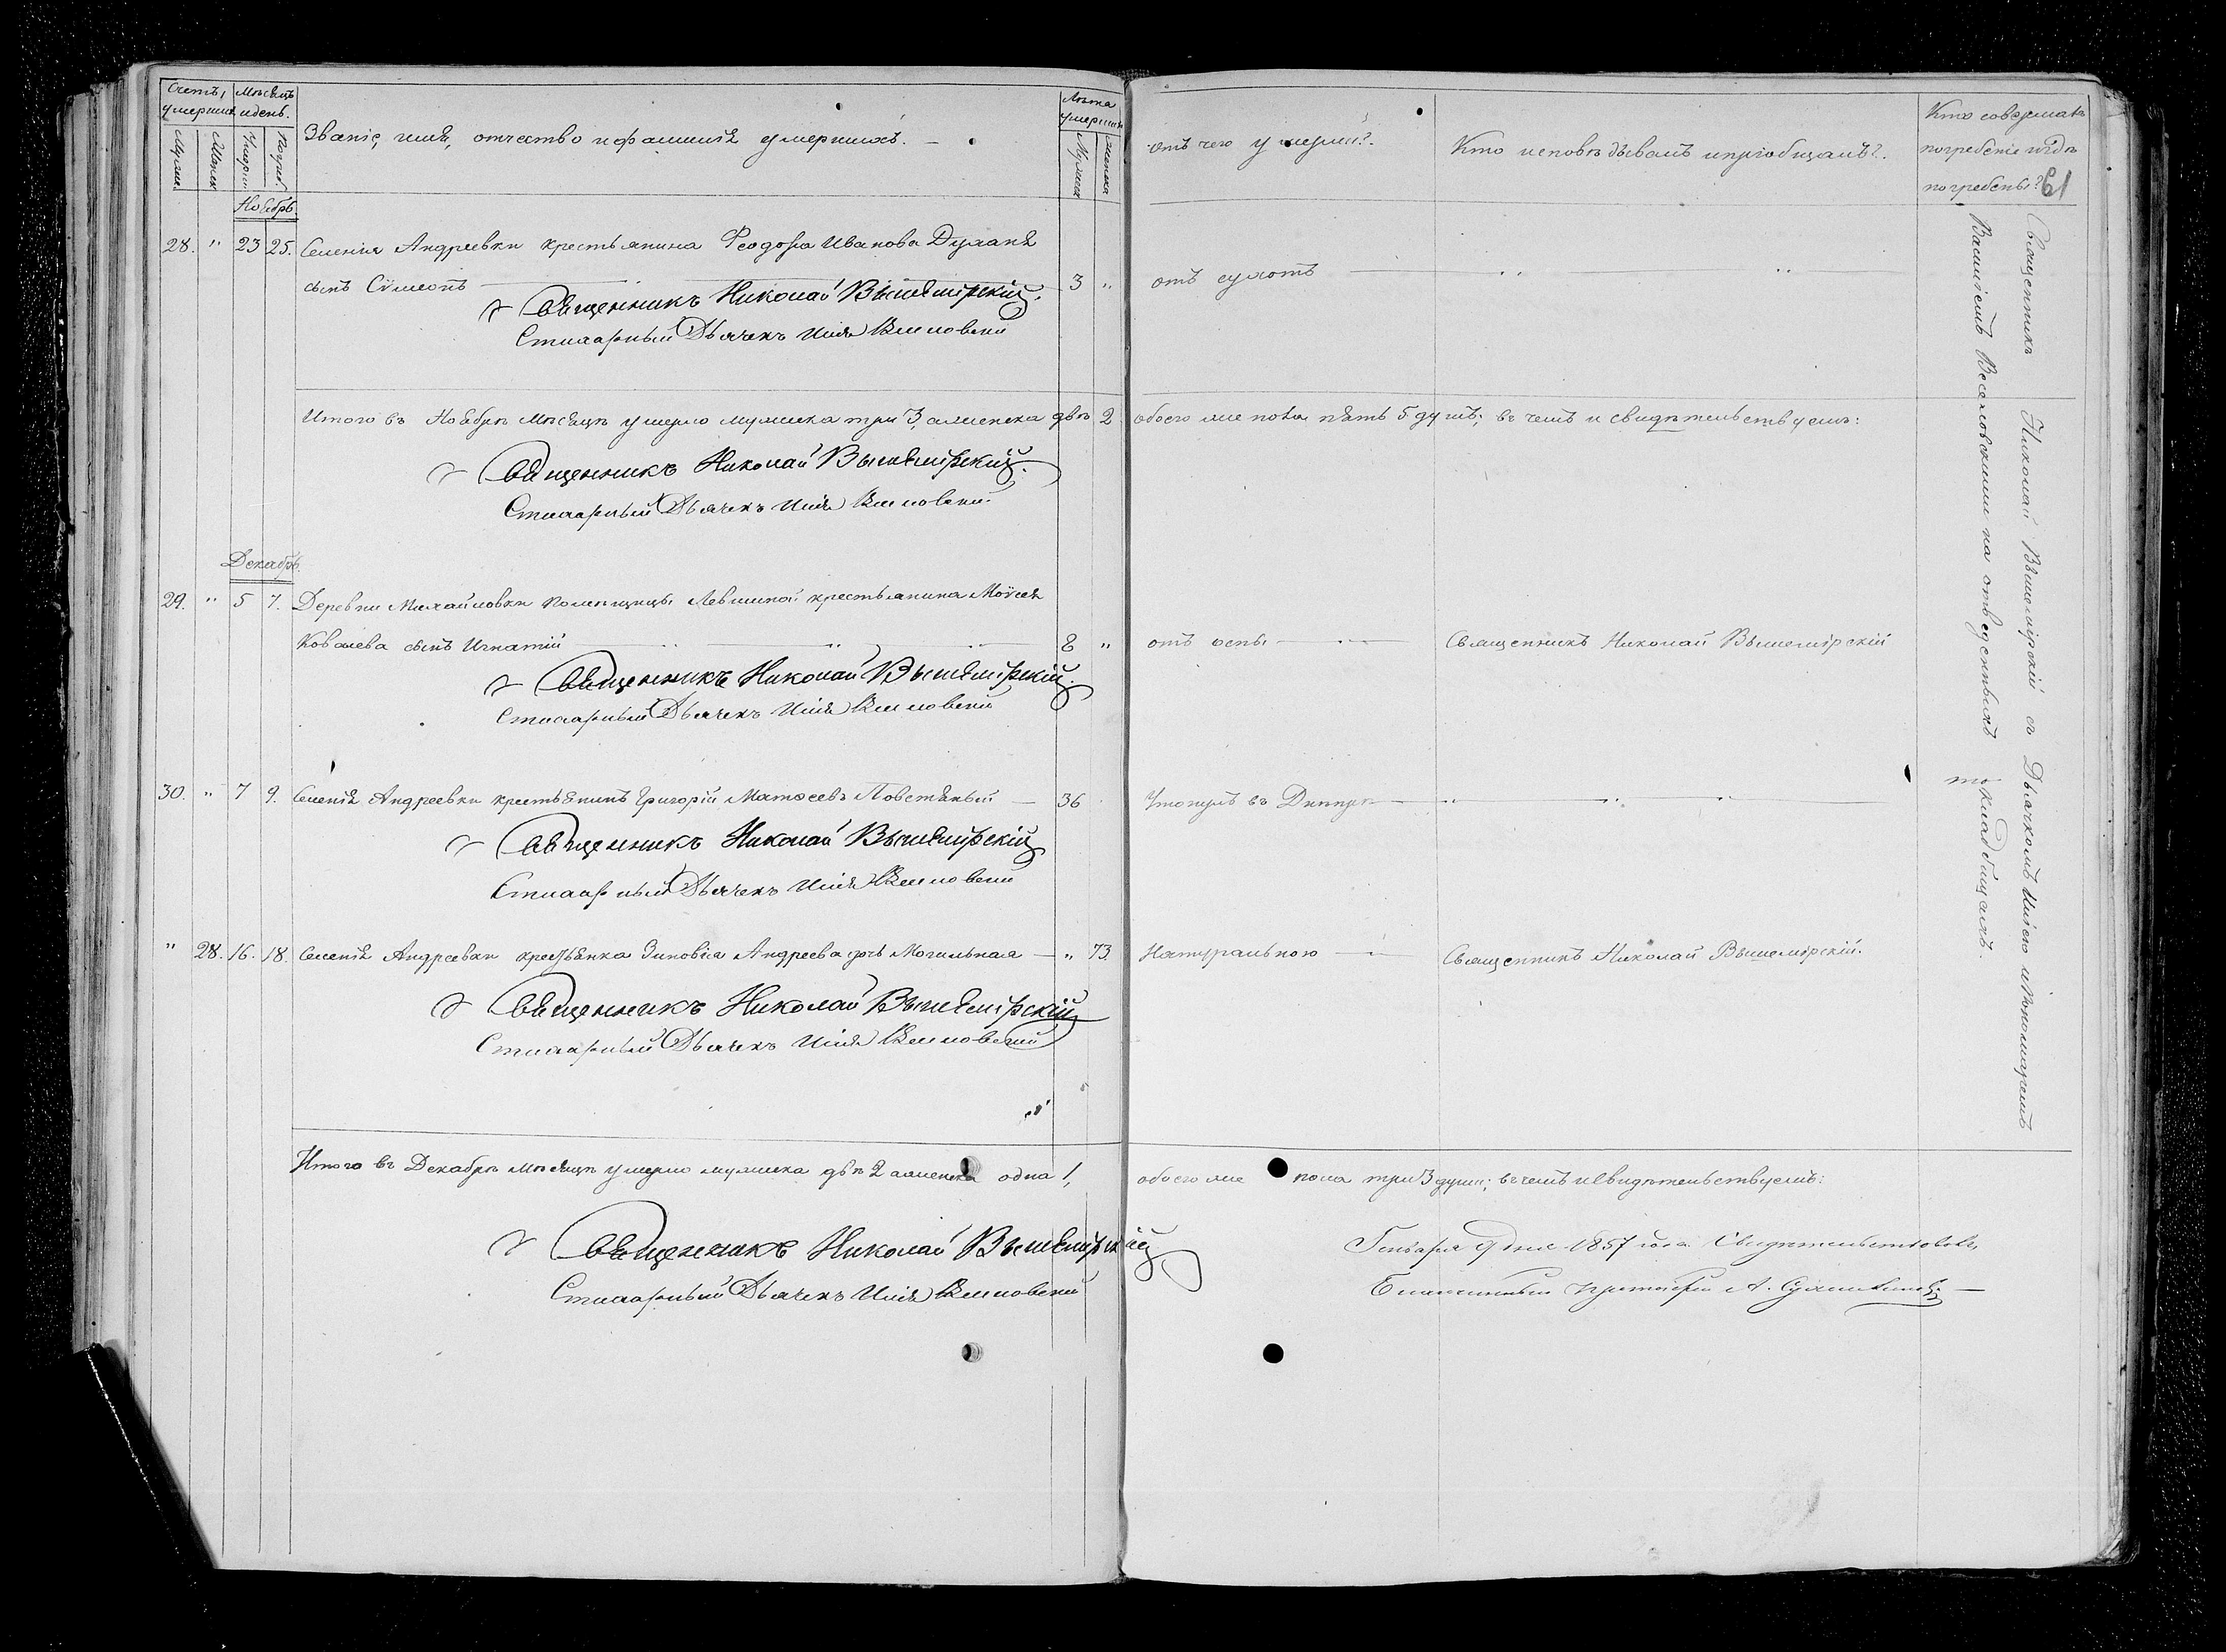 Счетъ умершихъ
Мѣсяцъ и день.
Званіе, имя, отчество и фамилія умершихъ. –
Лѣта умершихъ
отъ чего умерли?.
Кто исповѣдывалъ и пріобщалъ?.
Кто совершалъ
погребеніе и гдѣ
погребены? 61
Мужеск
Женск
Умерш
Погреб.
Мужеска
Женска
Ноябрь.
28. " 23 25. Селенія Андреевки крестьянина Ѳеодора Иванова
сынъ Сѵмеонъ 3 " отъ сухотъ " "
Священникъ Николай Вышемірскій.
Стихарный Дьячекъ Илія
Итого въ Ноябрѣ Мѣсяцѣ умерло мужеска три 3, а женска двѣ 2 обоего же пола пять 5 душъ; въ чемъ и свидѣтельствуемъ:
Священникъ Николай Вышемірскій.
Стихарный Дьячекъ Илія
Декабрь.
29. " 5 7. Деревни Михайловки помѣщицы Левшиной крестьянина Моѵсея
Ковалева сынъ Игнатій 8 " отъ оспы Священникъ Николай Вышемірскій
Священникъ Николай Вышемірскій.
Стихарный Дьячекъ Илія
30. " 7 9. Селенія Андреевки крестьянинъ Григорій Матѳеевъ Повстяный — 36 Утонулъ въ Днѣпрѣ
Священникъ Николай Вышемірскій
Стихарный Дьячекъ Илія
" 28. 16. 18. Селенія Андреевки крестьянка Зиновія Андреева дочь Могильная — " 73 Натуральною Священникъ Николай Вышемірскій.
Священникъ Николай Вышемірскій
Стихарный Дьячекъ Илія
Итого въ Декабрѣ мѣсяцѣ умерло мужеска двѣ 2 а женска одна 1, обоего же пола три 3 души; въ чемъ и свидѣтельствуемъ:
Священникъ Николай Вышемірскій
Стихарный Дьячекъ Илія
Генваря 9 дня 1857 года Свидѣтельствовалъ
Благочинный Протоіерей А.
Священникъ Николай Вышемірскій съ Дьячкомъ Иліею и Пономаремъ
Василіемъ Веселовскимъ на отведенныхъ
кладбищахъ.